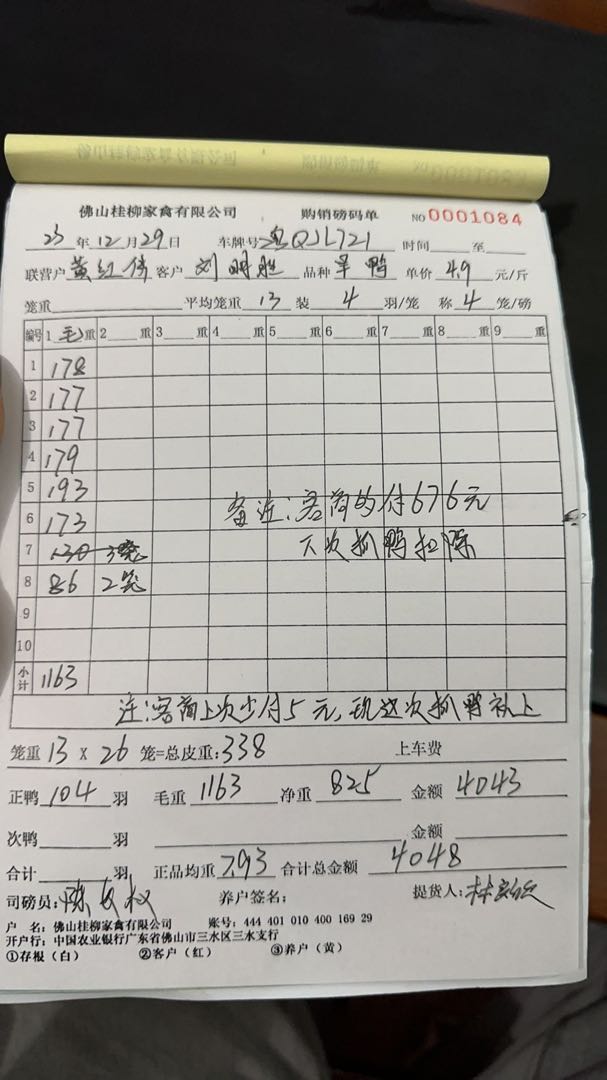 佛山桂柳家禽有限公司 购销磅码单 NO 0001084
23年12月29日 车牌号粤QJL721 时间 至
联营户 黄红伟 客户 刘明胜 品种 旱鸭 单价 4.9 元/斤
笼重 平均笼重 13 装 4 羽/笼 称 4 笼/磅
编号 1 毛重 2 重 3 重 4 重 5 重 6 重 7 重 8 重 9 重
1 178
2 177
3 177
4 179
5 193
6 173
备注:客商多付676元
7 130 3笼
下次抓鸭扣除
8 86 2笼
9
10
小计 1163
注:客商上次少付5元,现这次抓鸭补上
笼重 13 X 26 笼=总皮重:338 上车费
正鸭 104 羽 毛重 1163 净重 825 金额 4043
次鸭 羽 金额
合计 羽 正品均重 7.93 合计总金额 4048
司磅员: 陈 权 养户签名: 提货人: 林
户 名: 佛山桂柳家禽有限公司 账号: 444 401 010 400 169 29
开户行: 中国农业银行广东省佛山市三水区三水支行
①存根(白) ②客户(红) ③养户(黄)